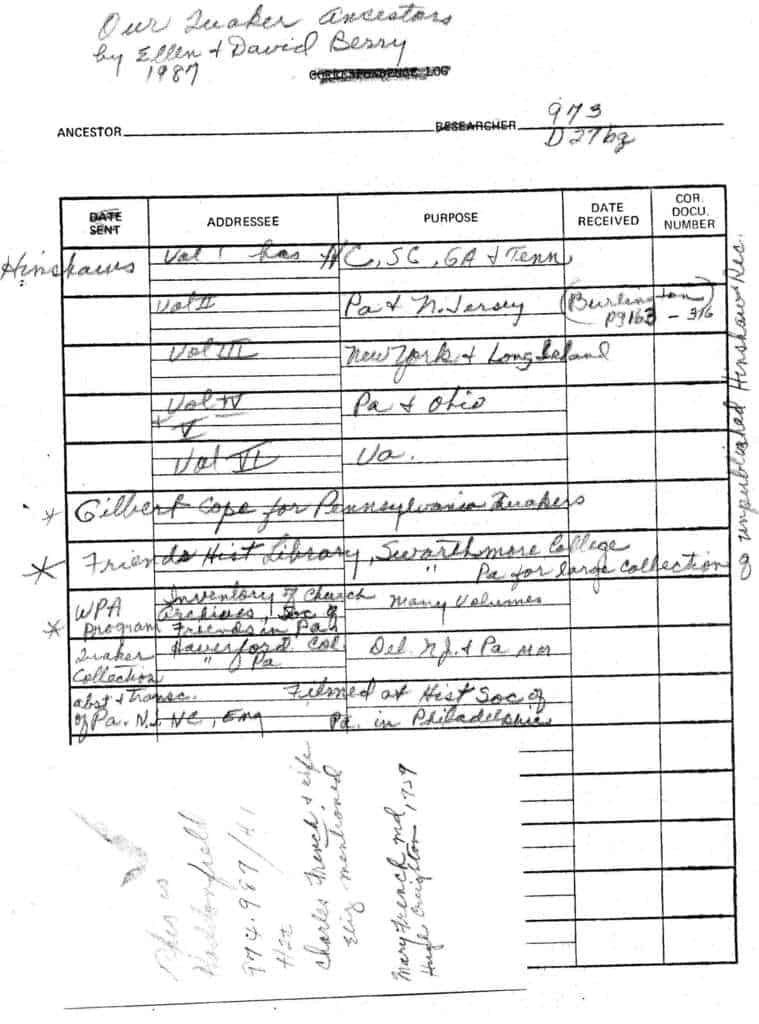 Our Quaker Ancestors
by Ellen & David Berry
1987
CORRESPONDENCE LOG
973
D27bg
ANCESTOR
RESEARCHER
DATE SENT
ADDRESSEE
PURPOSE
DATE RECEIVED
COR. DOCU. NUMBER
Hinshaws Vol I has NC, SC, GA & Tenn
Vol II Pa & N. Jersey (Burlington)
pg 163 - 316
Vol III New York & Long Island
Vol IV Pa & Ohio
+ V
Vol VI Va.
* Gilbert Cope for Pennsylvania Quakers
* Friends Hist Library, Swarthmore College
" Pa for large collection of unpublished Hinshaw Rec.
* WPA program Inventory of Church Archives, Soc of Friends in Pa Many Volumes
Quaker Collection Haverford Col. Del. N.J. & Pa MM
" of Pa
abst & transc. Filmed at Hist Soc of
of Pa. N.J. NC, Eng Pa. in Philadelphia
is
Haddonfield
974.987/41
H2
Charles French & wife
Eliz mentioned
Mary French md
Hugh Creighton, 1759